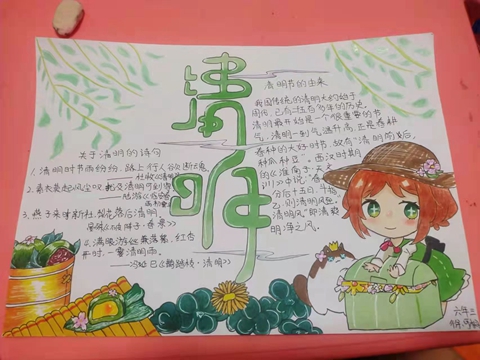 清明
清明节的由来
我国传统的清明大约始于
周代,已有二千五百多年的历史。
清明最开始是一个很重要的节
气,清明一到气温升高,正是春耕
春种的大好时节,故有"清明前后,
种瓜种豆"。西汉时期
的《淮南子·天文
训》中说:"春
分后十五日,斗指
乙,则清明风至。"
"清明风"即清爽
明净之风。
关于清明的诗句
1. 清明时节雨纷纷,路上行人欲断魂。
杜牧《清明》
3. 燕子来时新社,梨花落后清明。
4. 满眼游丝兼落絮,红杏
开时,一霎清明雨。
清明》
六年三